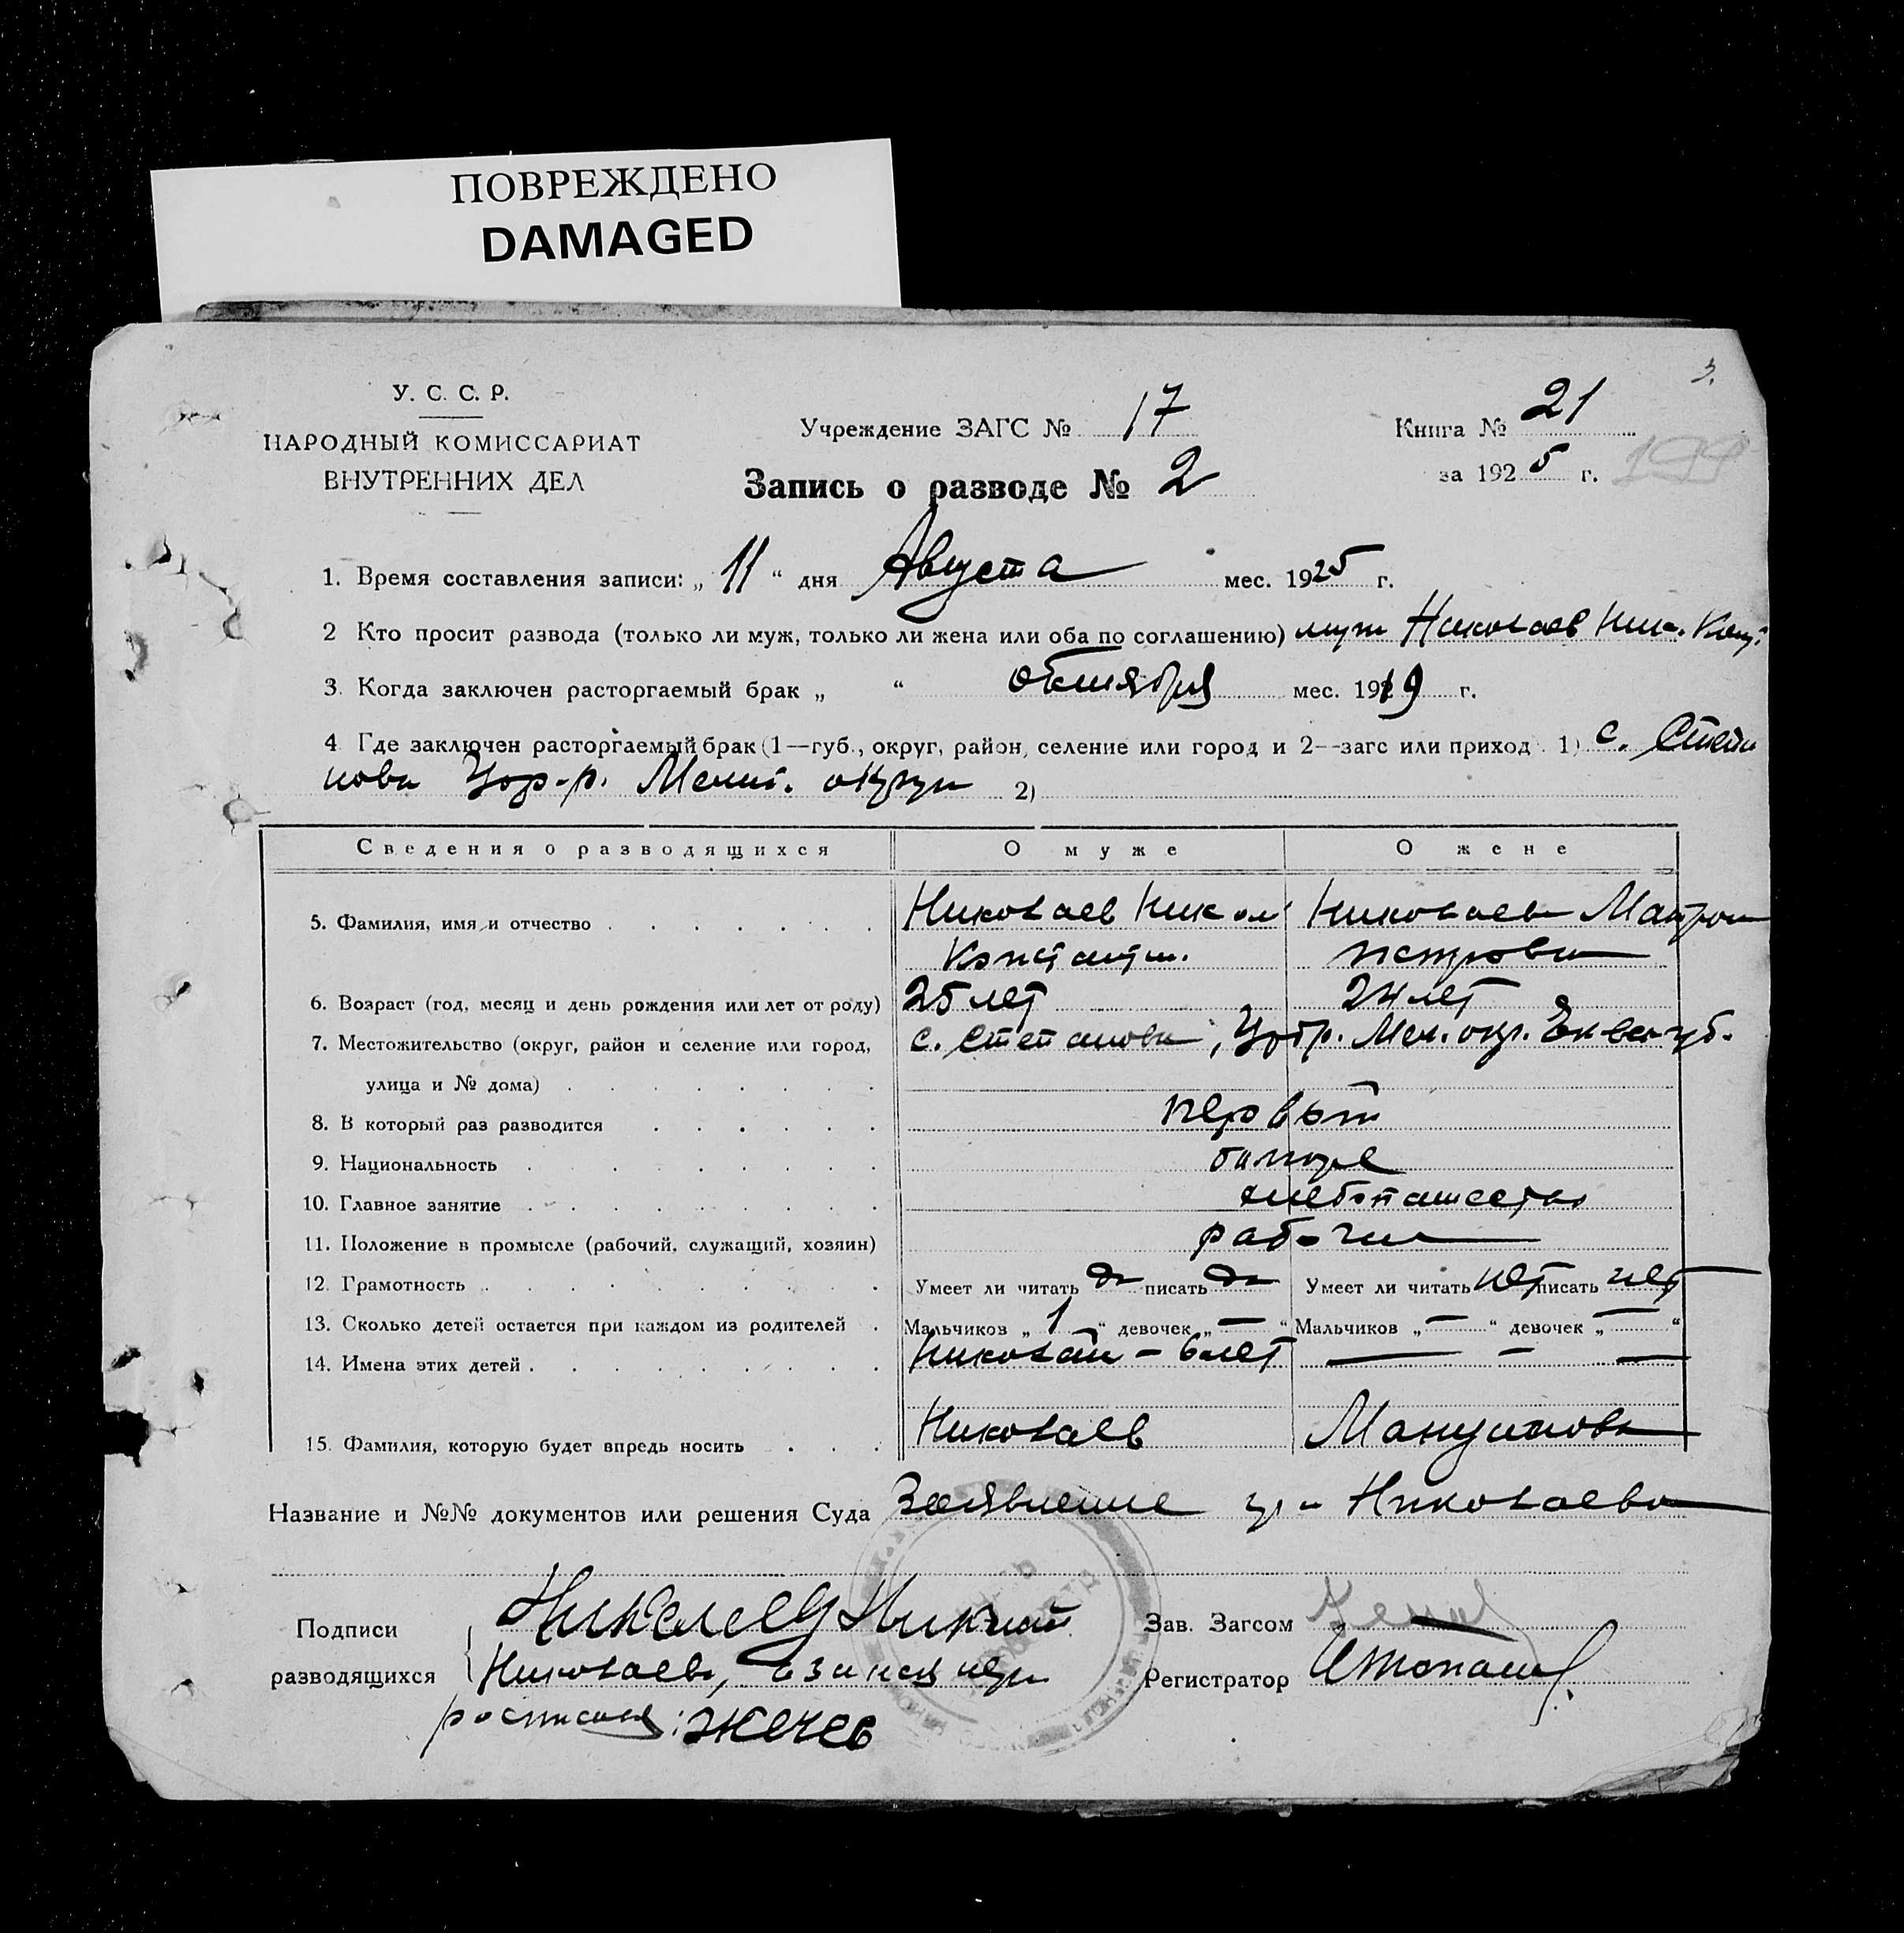 ПОВРЕЖДЕНО
DAMAGED
3.
У. С. С. Р.
НАРОДНЫЙ КОМИССАРИАТ
ВНУТРЕННИХ ДЕЛ
Учреждение ЗАГС № 17
Книга № 21
за 1925 г. 199
Запись о разводе № 2
1. Время составления записи: „ 11 “ дня Августа мес. 1925 г.
2 Кто просит развода (только ли муж, только ли жена или оба по соглашению) муж Николаев Ник. Конс.
3. Когда заключен расторгаемый брак „ “ октября мес. 1919 г.
4 Где заключен расторгаемый брак (1—губ., округ, район, селение или город и 2—загс или приход . 1) с. Степа
нова р. Мелит. округа 2)
Сведения о разводящихся О муже О жене
5. Фамилия, имя и отчество Николаев Никол Николаева Матрон
Константин. Петрова
6. Возраст (год, месяц и день рождения или лет от роду) 25 лет 24 лет
7. Местожительство (округ, район и селение или город, с. Степановка, Мел. окр. Еква губ.
улица и № дома)
8. В который раз разводится первый
9. Национальность
10. Главное занятие хлебопашество
11. Положение в промысле (рабочий, служащий, хозяин) рабочий
12. Грамотность Умеет ли читать да писать да Умеет ли читать нет писать нет
13. Сколько детей остается при каждом из родителей Мальчиков „ 1 “ девочек „ — “ Мальчиков „ — “ девочек „ — “
14. Имена этих детей Николай – 6 лет — — —
15. Фамилия, которую будет впредь носить Николаев Манушова
Название и №№ документов или решения Суда Заявление гр-на Николаева
Подписи
разводящихся
Николаев Николай
Николаева, а за нея негр
росписался: Жечев
Зав. Загсом
Регистратор